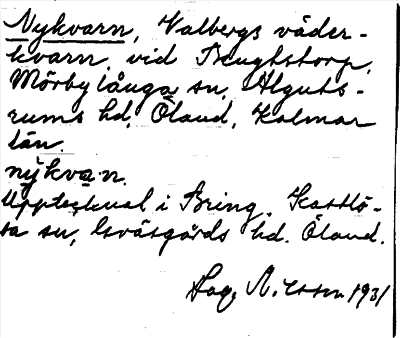 Nykvarn, Valbergs väder-
kvarn, vid Bengtstorp,
Mörbylånga sn, Alguts-
rums hd, Öland, Kalmar
län.
nýkvan.
Upptecknad i Bring, Kastlö-
sa sn, Gräsgårds hd. Öland.
Dag. Nilsson 1931